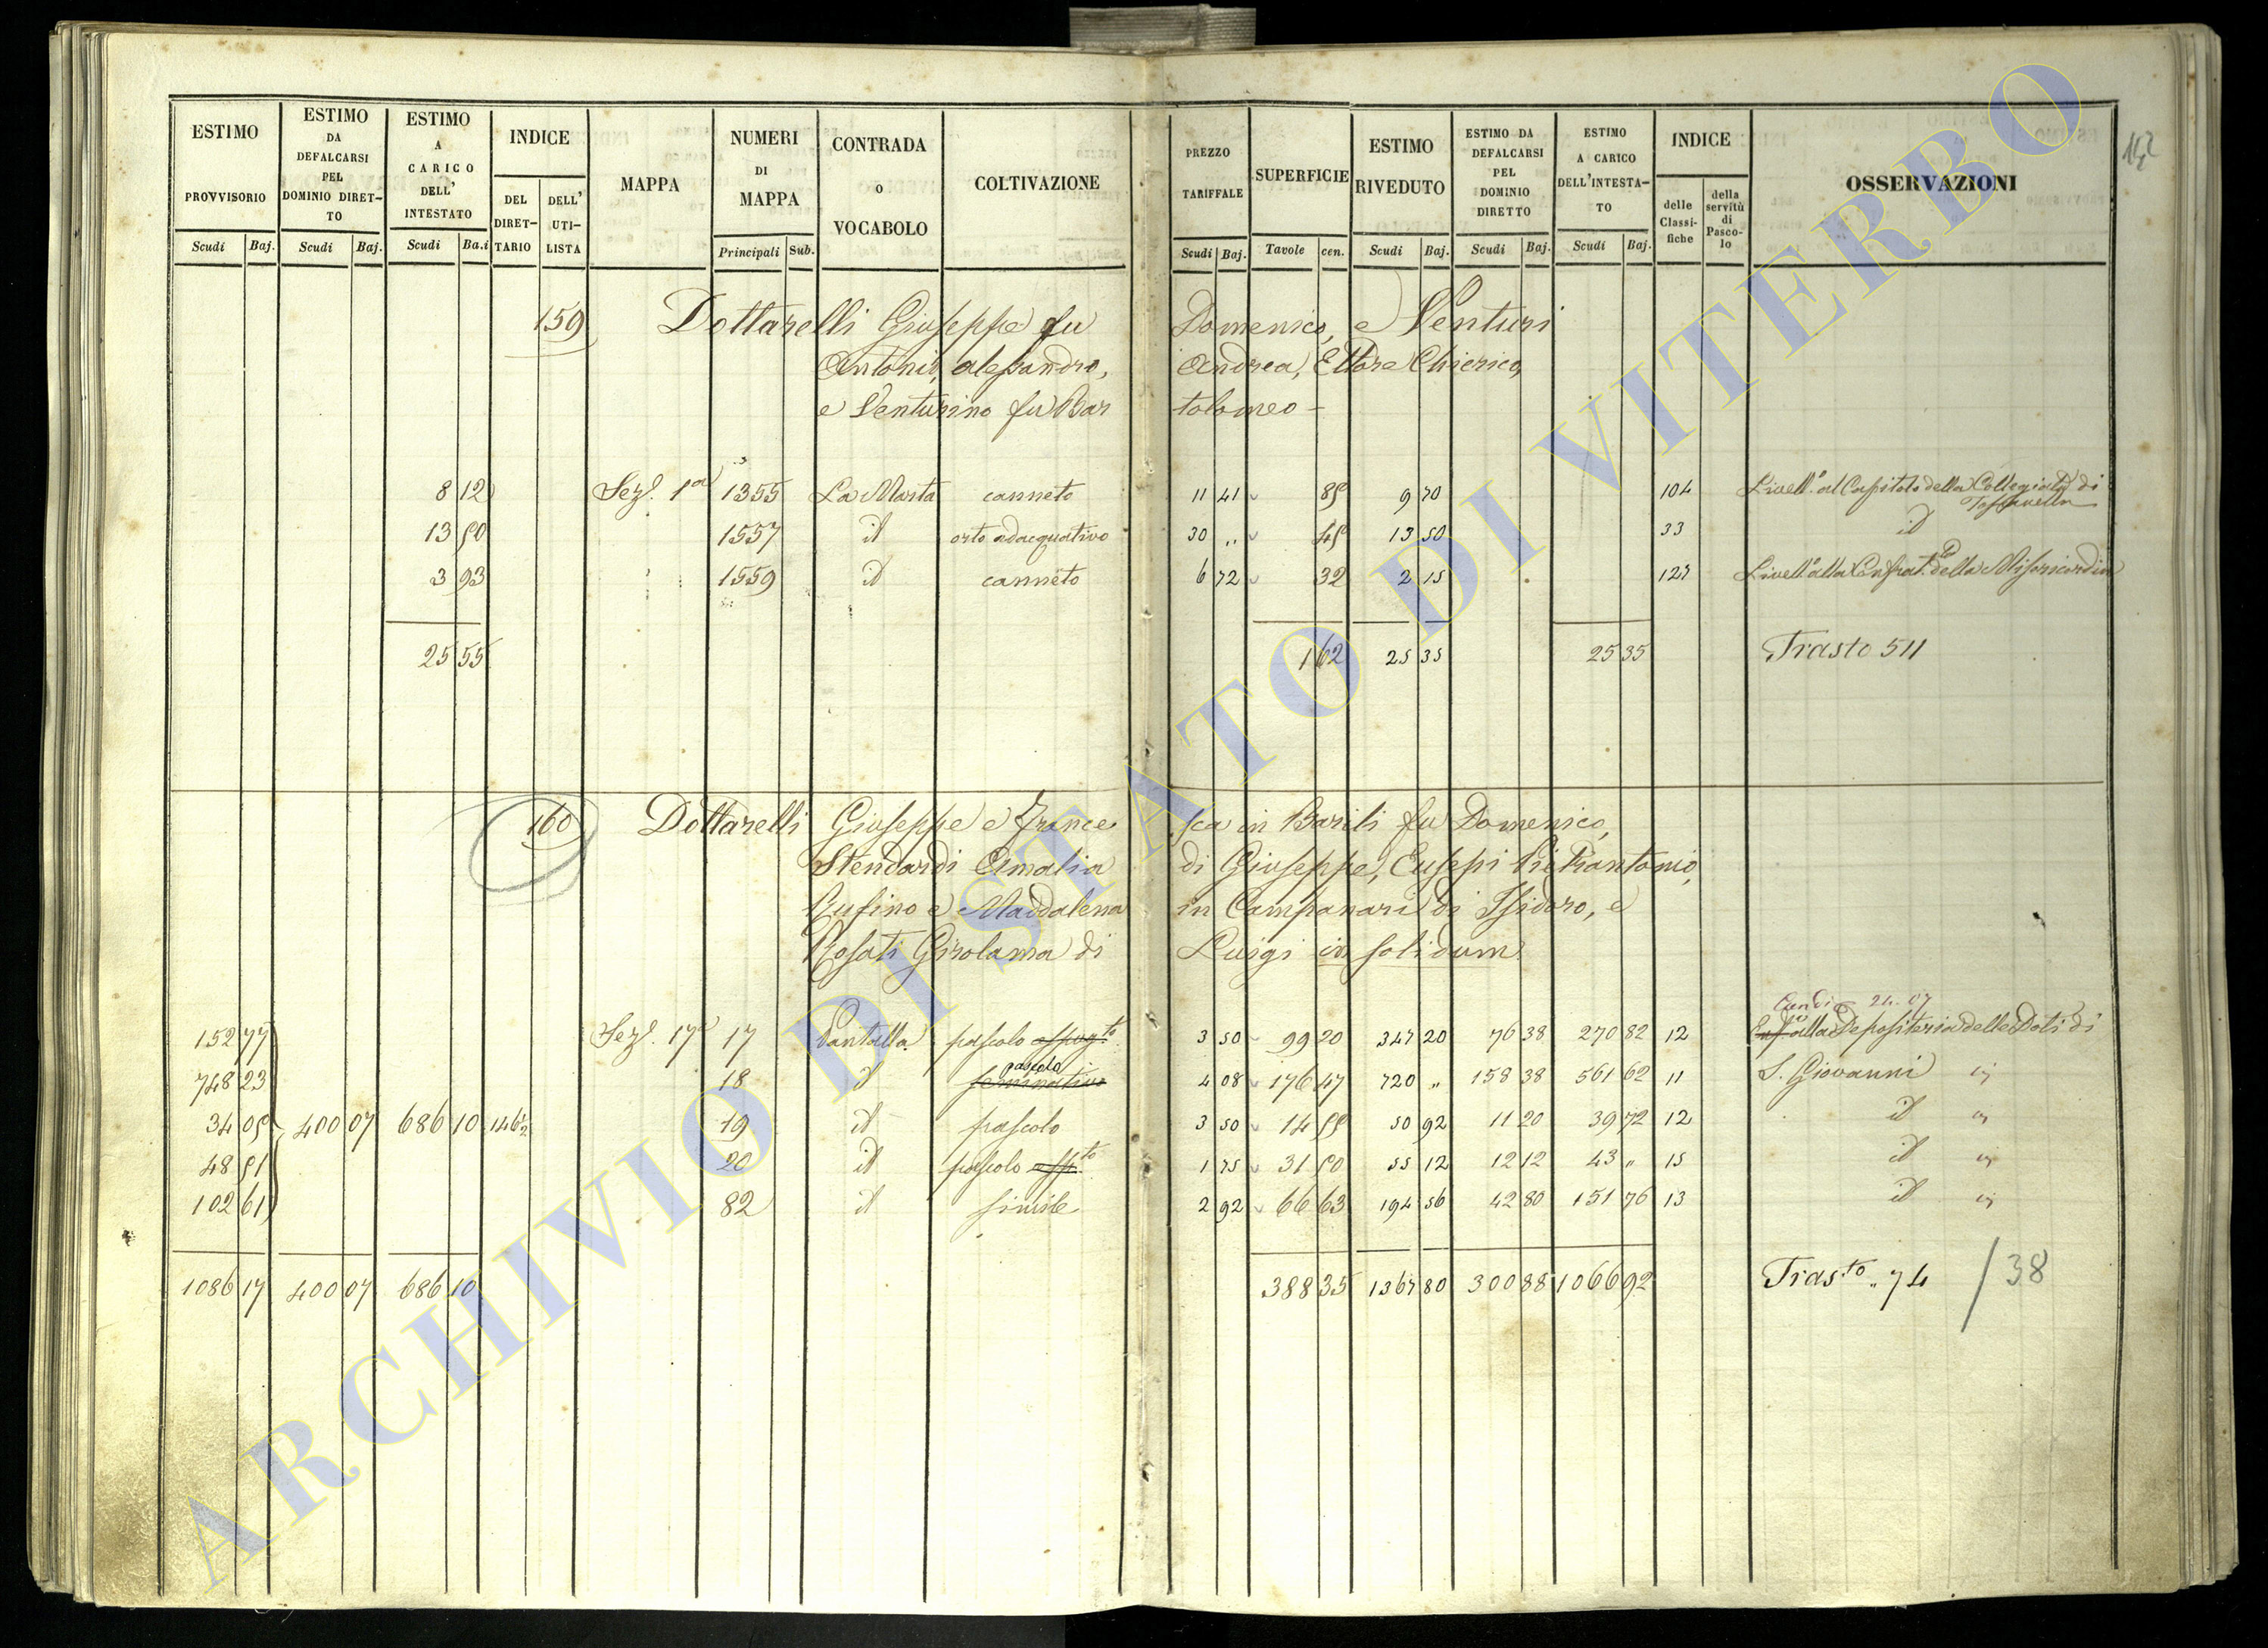 142
ESTIMO PROVVISORIO Scudi Baj.
ESTIMO DA DEFALCARSI PEL DOMINIO DIRETTO Scudi Baj.
ESTIMO A CARICO DELL' INTESTATO Scudi Ba.i
INDICE DEL DIRETTARIO DELL' UTILISTA
MAPPA
NUMERI DI MAPPA Principali Sub.
CONTRADA O VOCABOLO
COLTIVAZIONE
PREZZO TARIFFALE Scudi Baj.
SUPERFICIE Tavole cen.
ESTIMO RIVEDUTO Scudi Baj.
ESTIMO DA DEFALCARSI PEL DOMINIO DIRETTO Scudi Baj.
ESTIMO A CARICO DELL'INTESTATO Scudi Baj.
INDICE delle Classifiche della servitù di Pascolo
OSSERVAZIONI
159 Dottarelli Giuseppe fu Domenico, e Venturi
Antonio, Alessandro, Andrea, Ettore Chierico,
e Venturino fu Bartolomeo –
8 12 Seze. 1a 1355 La Marta canneto 11 41 85 9 70 104 Livell.o al Capitolo della Collegiata di Toscanella
13 50 1557 id orto adacquativo 30 „ 45 13 50 33 id
3 93 1559 id canneto 6 72 32 2 15 127 Livell.o alla Confrat. della Misericordia
25 55 1 62 25 35 25 35 Trasto 511
160 Dottarelli Giuseppe e Francesca in Barili fu Domenico,
Stendardi Amalia di Giuseppe, Eusepi Pietrantonio,
Rufino e Maddalena in Campanari di Isidoro, e
Rosati Girolama di Luigi in solidum
24.07
152 77 Seze. 17a 17 Pantalla pascolo 3 50 99 20 347 20 76 38 270 82 12 alla Depositeria delle Doti di
748 23 18 id seminativo pascolo 4 08 176 47 720 „ 158 38 561 62 11 S. Giovanni
34 05 400 07 686 10 146½ 19 id pascolo 3 50 14 55 50 92 11 20 39 72 12 id
48 51 20 id pascolo 1 75 31 50 55 12 12 12 43 „ 15 id
102 61 82 id simile 2 92 66 63 194 56 42 80 151 76 13 id
1086 17 400 07 686 10 388 35 1367 80 300 88 1066 92 Trasto „ 74 / 38
ARCHIVIO DI STATO DI VITERBO